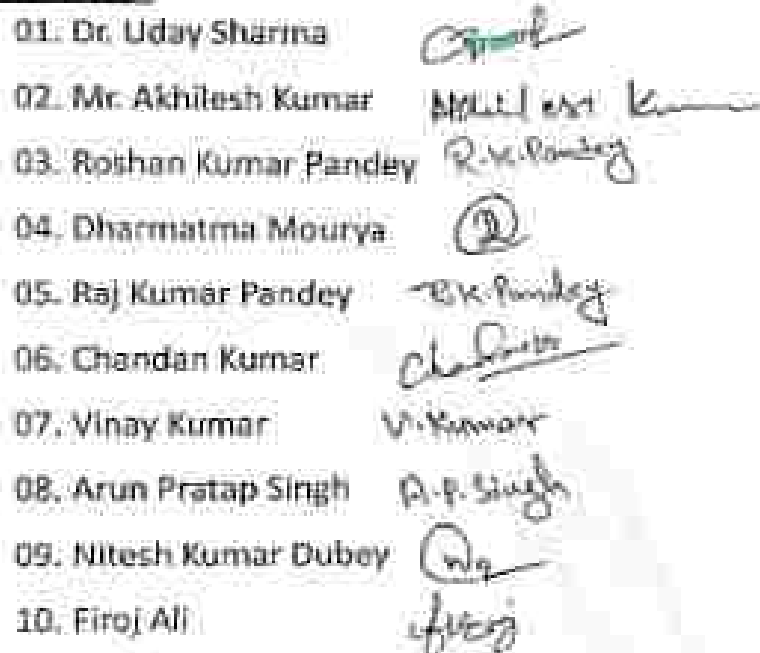 01. Dr. Uday Sharma
02. Mr. Akhilesh Kumar
03. Roshan Kumar Pandey R.K.Pandey
04. Dharmatma Mourya
05. Raj Kumar Pandey RK.Pandey
06. Chandan Kumar
07. Vinay Kumar V.Kumar
08. Arun Pratap Singh A.P.Singh
09. Nitesh Kumar Dubey
10. Firoj Ali